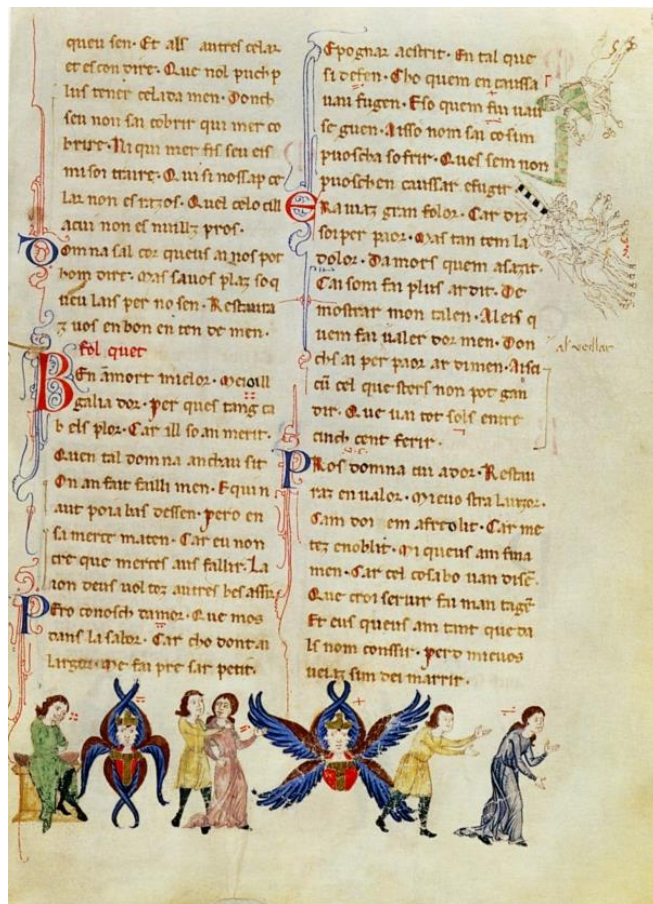 queu sen. Et als autres celar
et escondire. Que nol puch p
lus tener celada men. Donch
seu non sai cobrir qui mer co
brire. Ni qui mer fis seu eis
mi soi traire. Qui si nossap ce
lar non es razos. Quel celo cill
acui non es nuillz pros.
Domna sal cor queus ai nos por
hom dire. Mas sauos plaz so q
ueu lais per no sen. Restaura
z uos en bon en ten de men.
fol quet
BEn an mort mi e lor. Mei oill
galiador. per ques tang ca
b els plor. Car ill so an merit.
Quen tal dom na an chau sit
On an fait failli men. Equi n
aut poia bas dessen. pero en
sa merce m aten. Car eu non
cre que merces aus fallir. La
ion deus vol tez autres bes assir
PEro conosch damor. Que mos
dans la sabor. Car cho dont ai
largor. Me fai pre sar petit.
Epognar aestrit. En tal que
si defen. Cho quem en caussa
uau fugen. Eso quem fui uau
se guen. Aisso nom sai cosim
puoscha sofrir. Ques sem non
puosch en caussar e fugir.
ERauiaz gran folor. Car diz
soi per paor. Mas tan tem la
dolor. Damors quem asazit.
Cai som fai plus ardit. De
mostrar mon talen. Aleis q
uem fai ualer dormen. Don
chs ai per paor ardimen. Aisi
cū cel que sters non pot gan
dir. Que uai tot sols entre
cinch cent ferir.
PRos domna cui ador. Restau
raz en valor. Mi e uostra lauzor.
Cam doi em afreolit. Car me
tez en oblit. Mi queus am fina
men. Car cel cosabo uan disē.
Que croi seruir fai man tagē
Et eus queus am tant que da
ls nom conssir. pero mi e uos
ueiaz sim dei marrir.